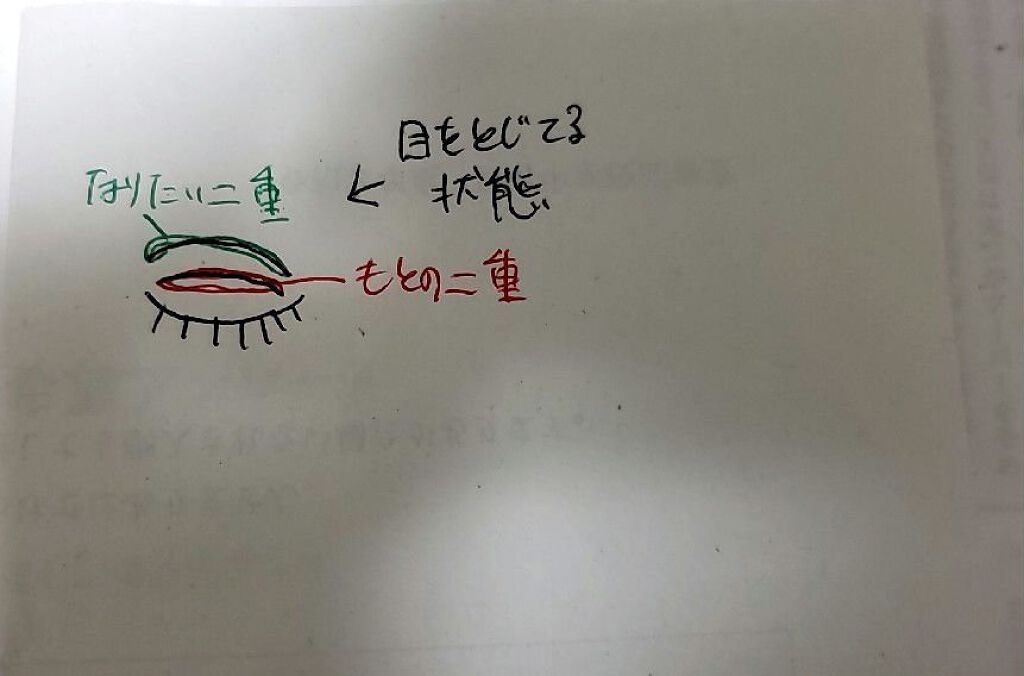 目をとじてる
状態
なりたい二重
もとの二重